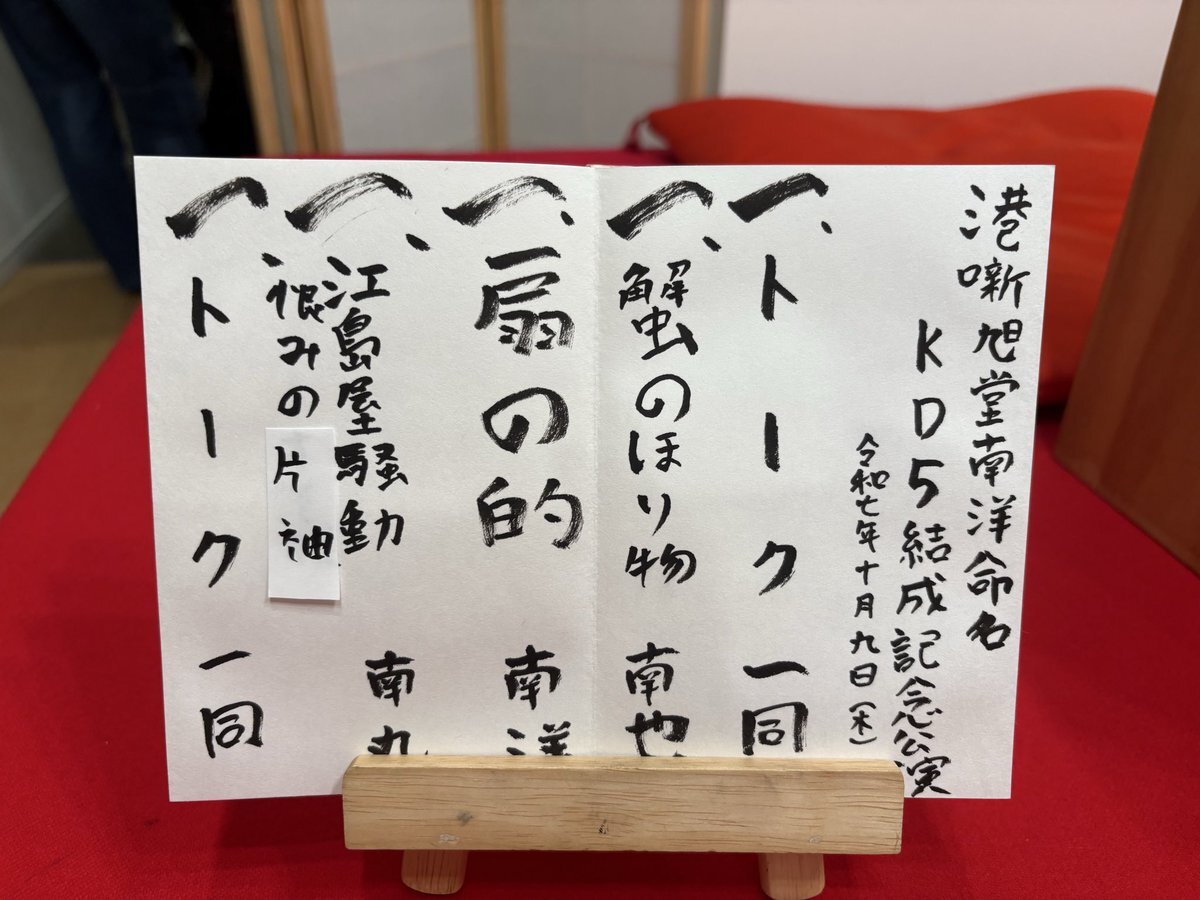 港噺旭堂南洋命名
KD5結成記念公演
令和七年十月九日(木)
一、トーク 一同
一、蟹のほり物 南也
一、扇の的 南洋
一、江島屋騒動 南丸
恨みの片袖
一、トーク 一同